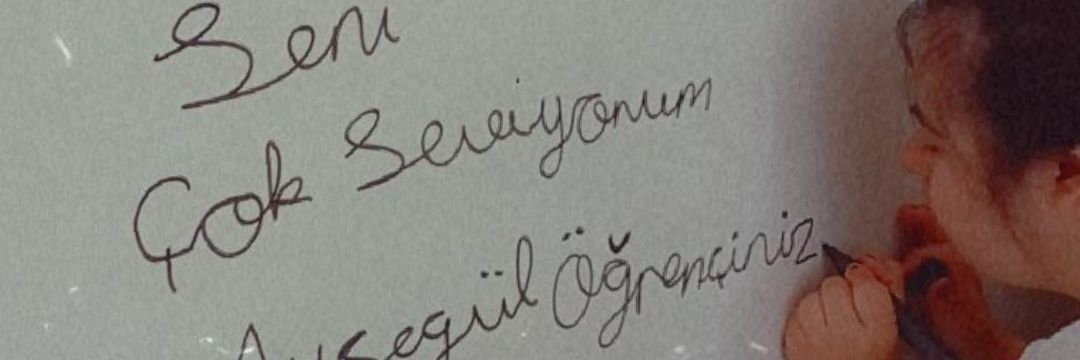 Seni
Çok Seviyorum
Ayşegül Öğrenciniz